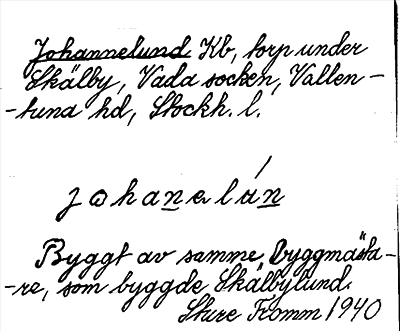 Johannelund Kb, torp under
Skälby, Vada socken, Vallen-
-tuna hd, Stockh. l.
johanelún
Byggt av samme byggmästa-
-re, som byggde Skälbylund.
Sture Fromm 1940